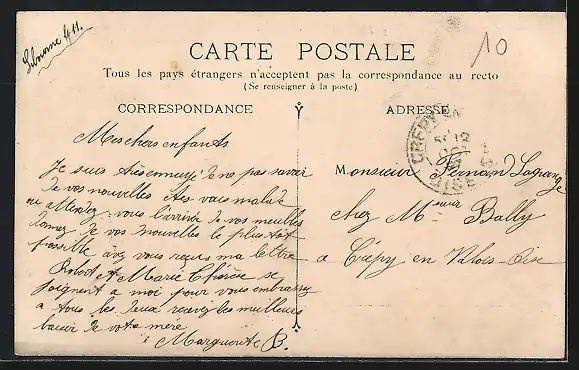 Libourne 4/11.
10
CARTE POSTALE
Tous les pays étrangers n'acceptent pas la correspondance au recto
(Se renseigner à la poste)
CORRESPONDANCE
ADRESSE
Mes chers enfants
Je suis très ennuyé de ne pas avoir
de vos nouvelles êtes vous malade
ou attendez-vous l'arrivée de vos meubles
donnez de vos nouvelles le plus tot
possible avez vous reçues ma lettre
Robert et Marie Thérèse se
joignent a moi pour vous embrasser
a tous les deux recevez les meilleurs
baiser de votre mère
Marguerite B.
Monsieur Fernand Lagrange
chez Monsieur Bally
a Crépy en Valois Oise
CREPY
OISE